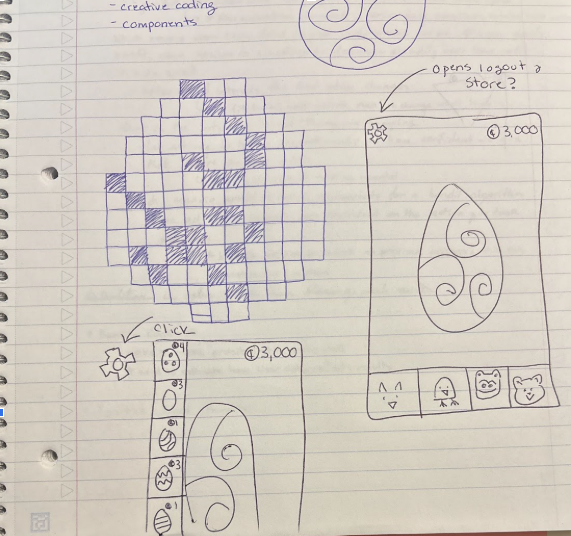 - creative coding
- components
opens logout &
store?
¢ 3,000
click
¢ 3,000
4
3
1
3
1